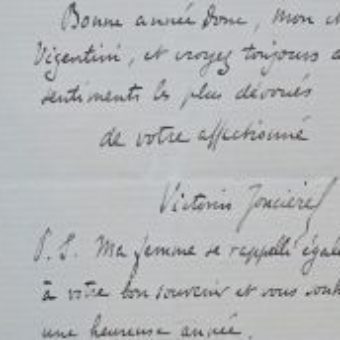 Bonne année donc, mon c
Vigentini, et croyez toujours a
sentiments les plus dévoués
de votre affectionné
Victorin Joncières
P. S. Ma femme se rappelle égale
à votre bon souvenir et vous souh
une heureuse année.